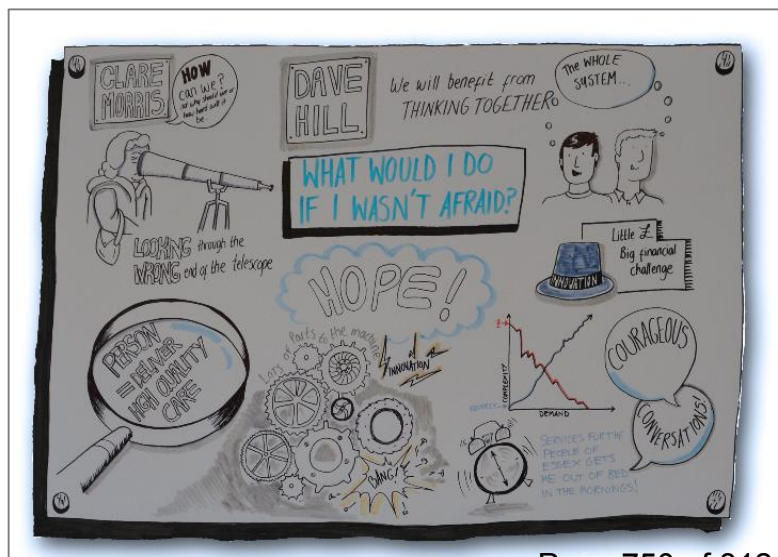 CLARE
MORRIS
HOW
can we?
DAVE
HILL
We will benefit from
THINKING TOGETHER
The WHOLE
SYSTEM...
WHAT WOULD I DO
IF I WASN'T AFRAID?
LOOKING through the
WRONG end of the telescope
Little £
Big financial
challenge
INNOVATION
HOPE!
PERSON
= DELIVER
HIGH QUALITY
CARE
Lots of Parts to the machine
INNOVATION
BANG!
£
COMPLEXITY
DEMAND
COURAGEOUS
CONVERSATIONS!
SERVICES FOR THE
PEOPLE OF
ESSEX GETS
ME OUT OF BED
IN THE MORNINGS!